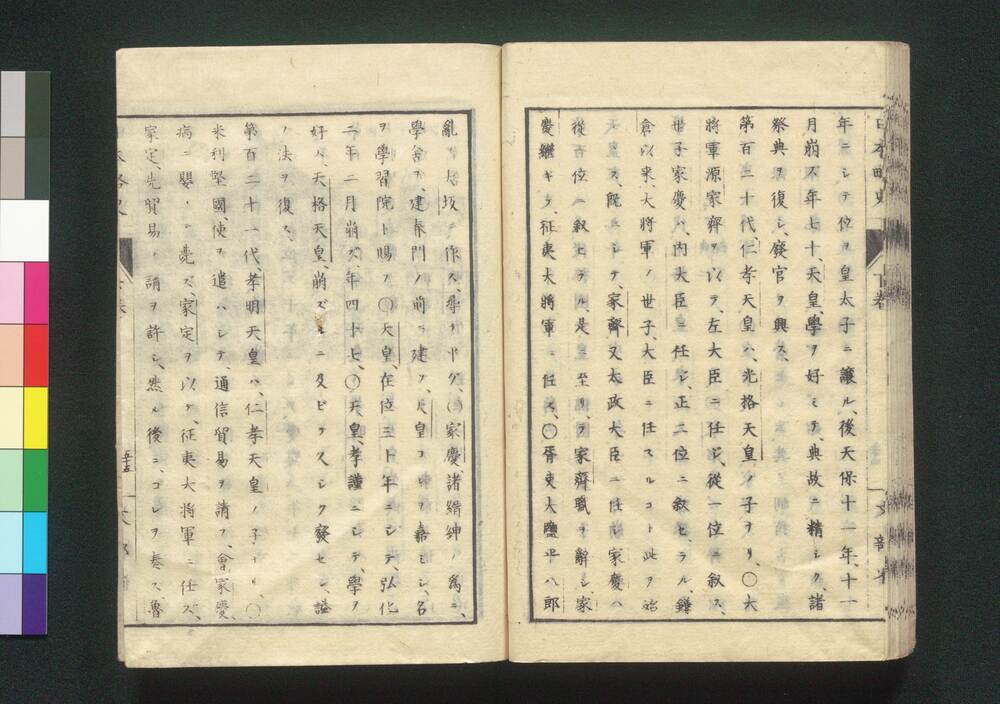 日本略史 下卷
年ニシテ位ヲ皇太子ニ讓ル、後天保十一年、十一
月崩ズ年七十、天皇、學ヲ好ミテ、典故ニ精シク、諸
祭典ヲ復シ、廢官ヲ興ス、
第百二十代、仁孝天皇ハ、光格天皇ノ子ナリ、〇大
將軍源家齊ヲ以テ、左大臣ニ任ジ、從一位ニ敘ス、
世子家慶ハ、內大臣ニ任シ、正二位ニ敘セラル、鎌
倉以來、大將軍ノ世子、大臣ニ任スルコト此ヲ始
トス、院ニシテ、家齊又太政大臣ニ任ジ家慶ハ
從一位ニ敘セラル、是ニ至リ、テ家齊職ヲ辭シ、家
慶繼ギテ、征夷大將軍ニ任ス、〇胥吏大鹽平八郎
亂ヲ大坂ニ作ス、尋テ平グ、家慶、諸縉紳ノ爲ニ、
學舍ヲ、建春門ノ前ニ建ツ、天皇コレヲ嘉ミシ、名
ヲ學習院ト賜フ〇天皇、在位三十年ニシテ、弘化
二年二月崩ズ、年四十七、〇天皇、孝謹ニシテ、學ヲ
好ム、天格天皇、崩ズルニ及ビテ久シク發セシ謚
ノ法ヲ復ス、
第百二十一代、孝明天皇ハ、仁孝天皇ノ子ナリ、〇
米利堅國、使ヲ遣ハシテ、通信貿易ヲ請フ、會家慶、
病ニ嬰リテ薨ズ、家定ヲ以テ、征夷大將軍ニ任ス、
家定、先貿易ノ請ヲ許シ、然ル後ニ、コレヲ奏ス、魯
五十五